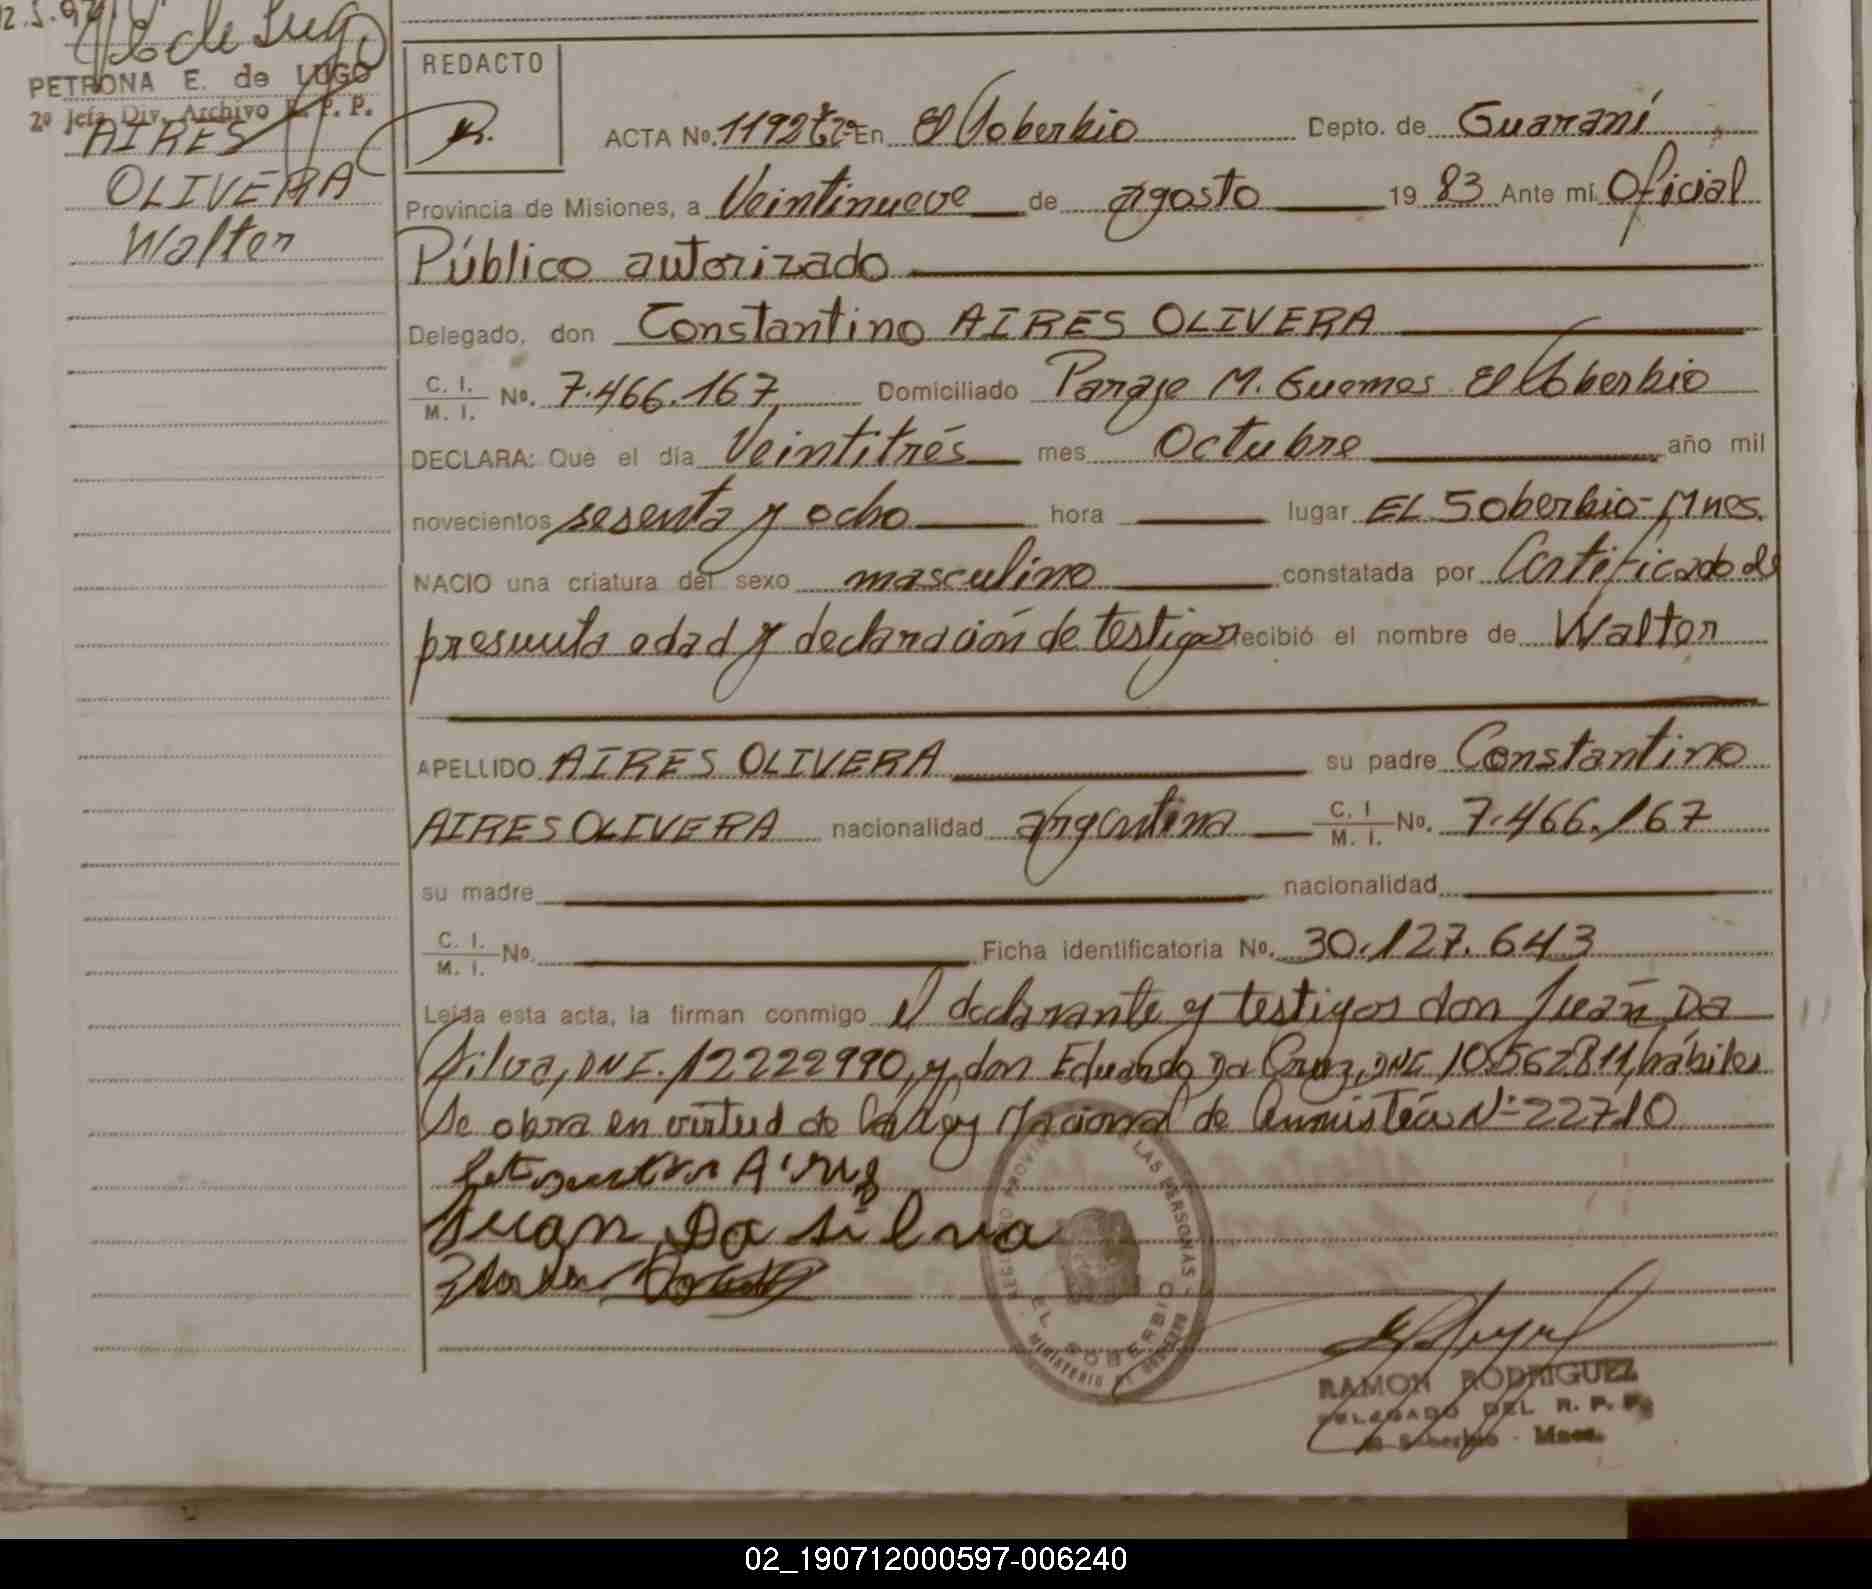 de Lugo
PETRONA E. de LUGO
2º Jefa Div. Archivo R. P. P.
AIRES
OLIVERA
Walter
REDACTO
ACTA Nº. 1192 tº 2º En El Soberbio Depto. de Guaraní
Provincia de Misiones, a Veintinueve de agosto 19 83 Ante mí. Oficial
Público autorizado
Delegado, don Constantino AIRES OLIVERA
C. I. / M. I. Nº. 7.466.167 Domiciliado Paraje M. Guemes El Soberbio
DECLARA: Que el día Veintitrés mes Octubre año mil
novecientos sesenta y ocho hora lugar EL Soberbio-Mnes.
NACIO una criatura del sexo masculino constatada por Certificado de
presunta edad y declaración de testigos recibió el nombre de Walter
APELLIDO AIRES OLIVERA su padre Constantino
AIRES OLIVERA nacionalidad argentina C. I / M. I. Nº. 7.466.167
su madre nacionalidad
C. I. / M. I. Nº. Ficha identificatoria Nº. 30.127.643
Leída esta acta, la firman conmigo el declarante y testigos don Juan Da
Silva, DNI. 12222990, y don Eduardo Da Cruz, DNI 10.562.811, hábiles
Se obra en virtud de la Ley Nacional de Amnistía Nº 22710
Aires
Juan Da Silva
REGISTRO PROVIN LAS PERSONAS
EL SOBERBIO
MINISTERIO DE GOBIERNO
RAMON RODRIGUEZ
DELEGADO DEL R. P. P.
El Soberbio - Mnes.
02_190712000597-006240